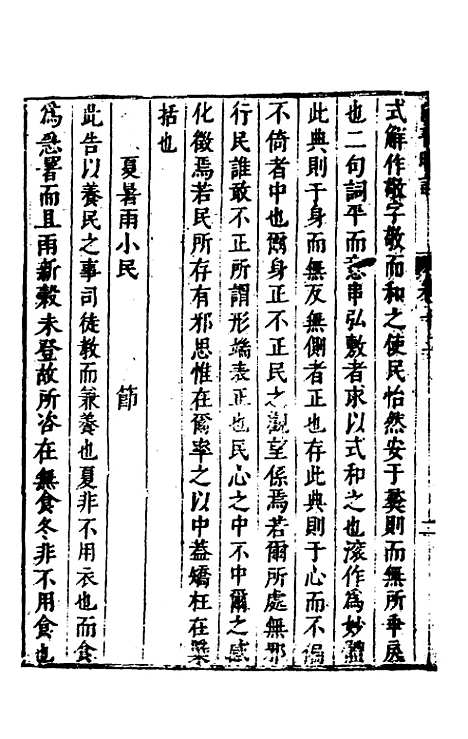 式解作敬字敬而和之使民怡然安于彝則而無所乖戾
也二句詞平而意串弘敷者求以式和之也滾作為妙體
此典則于身而無反無側者正也存此典則于心而不偏
不倚者中也爾身正不正民之觀望係焉若爾所處無邪
行民誰敢不正所謂形端表正也民心之中不中爾之感
化徵焉若民所存有邪思惟在爾率之以中蓋矯枉在檃
括也
夏暑雨小民　節
此告以養民之事司徒教而兼養也夏非不用衣也而食
為急暑而且雨新穀未登故所咨在無食冬非不用食也